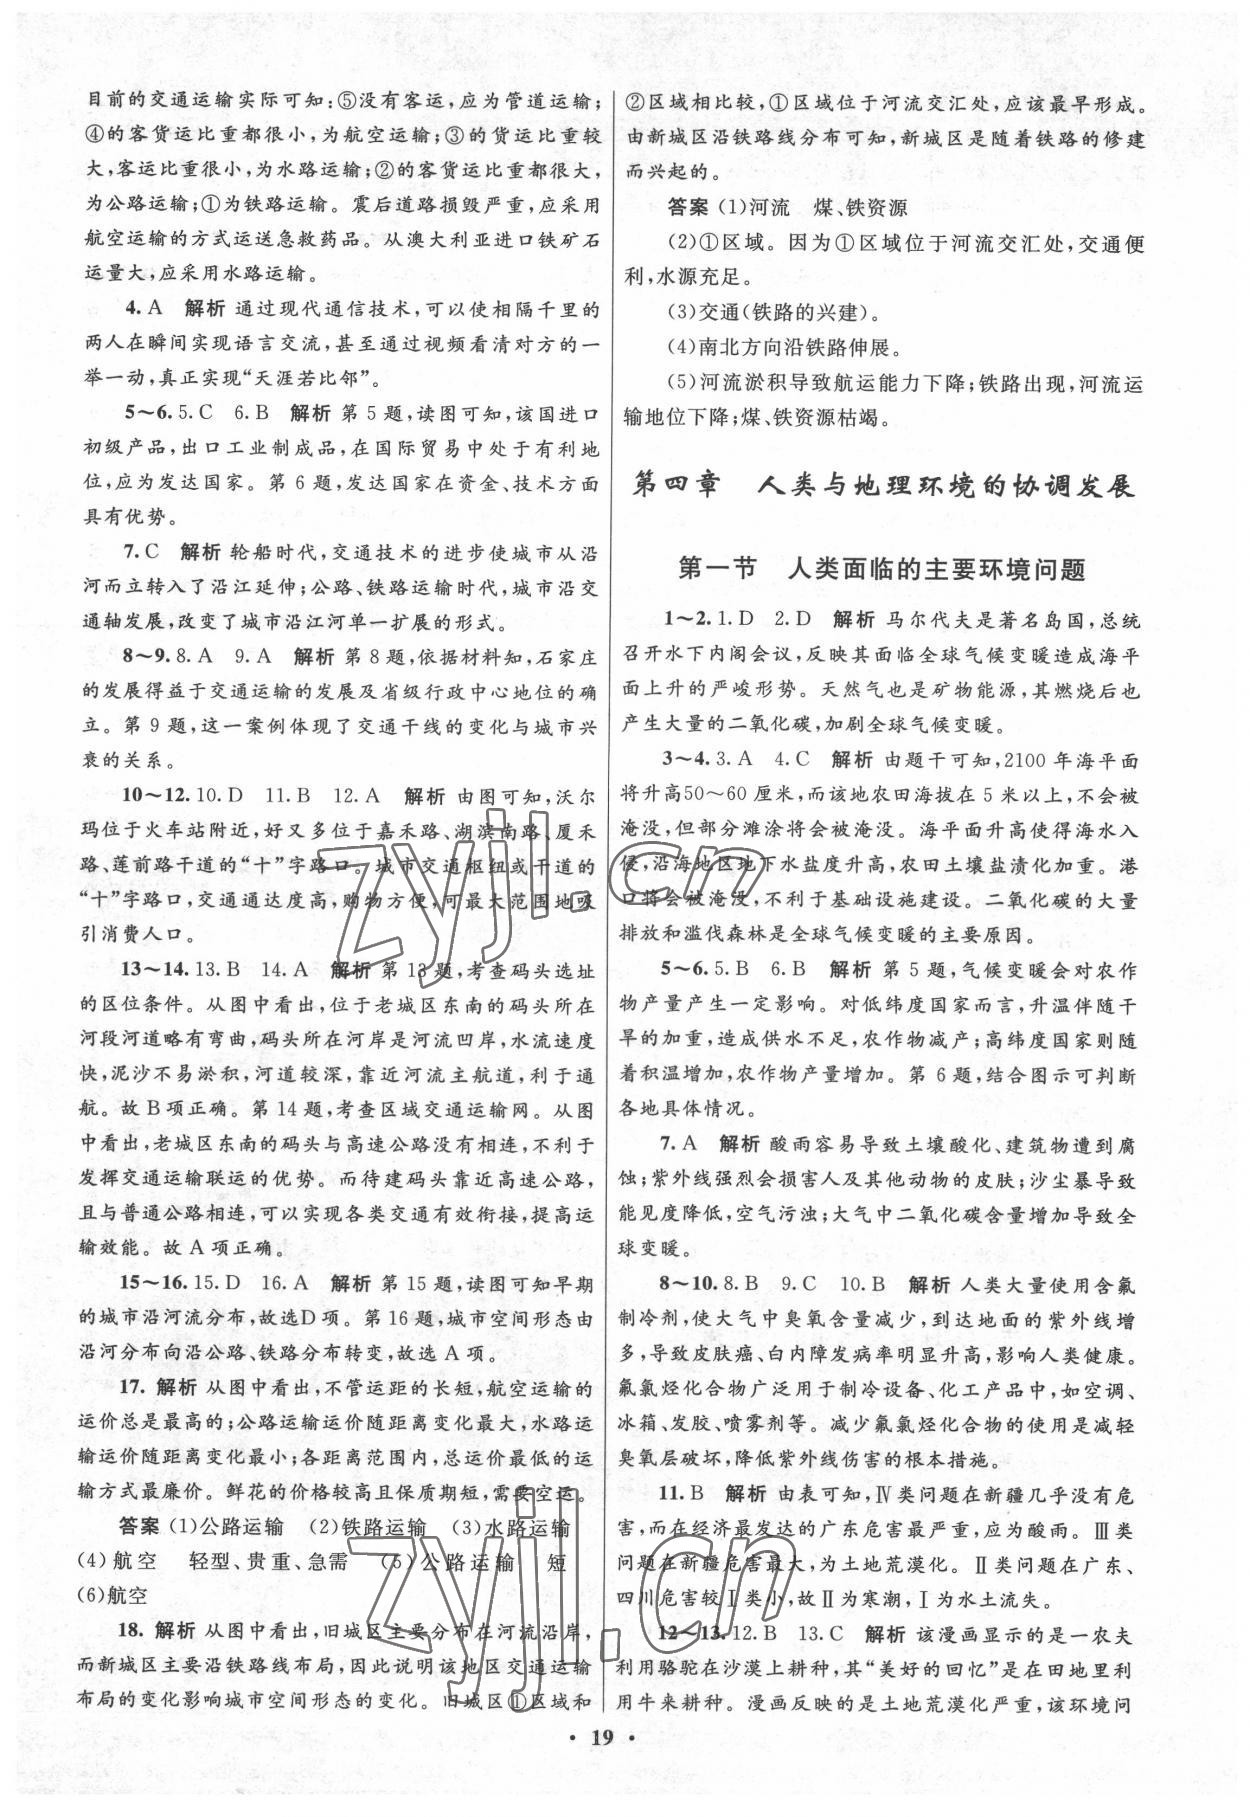 目前的交通运输实际可知:⑤没有客运,应为管道运输;
④的客货运比重都很小,为航空运输;③的货运比重较
大,客运比重很小,为水路运输;②的客货运比重都很大,
为公路运输;①为铁路运输。震后道路损毁严重,应采用
航空运输的方式运送急救药品。从澳大利亚进口铁矿石
运量大,应采用水路运输。
4. A 解析 通过现代通信技术,可以使相隔千里的
两人在瞬间实现语言交流,甚至通过视频看清对方的一
举一动,真正实现“天涯若比邻”。
5~6. 5. C 6. B 解析 第5题,读图可知,该国进口
初级产品,出口工业制成品,在国际贸易中处于有利地
位,应为发达国家。第6题,发达国家在资金、技术方面
具有优势。
7. C 解析 轮船时代,交通技术的进步使城市从沿
河而立转入了沿江延伸;公路、铁路运输时代,城市沿交
通轴发展,改变了城市沿江河单一扩展的形式。
8~9. 8. A 9. A 解析 第8题,依据材料知,石家庄
的发展得益于交通运输的发展及省级行政中心地位的确
立。第9题,这一案例体现了交通干线的变化与城市兴
衰的关系。
10~12. 10. D 11. B 12. A 解析 由图可知,沃尔
玛位于火车站附近,好又多位于嘉禾路、湖滨南路、厦禾
路、莲前路干道的“十”字路口。城市交通枢纽或干道的
“十”字路口,交通通达度高,购物方便,可最大范围地吸
引消费人口。
13~14. 13. B 14. A 解析 第13题,考查码头选址
的区位条件。从图中看出,位于老城区东南的码头所在
河段河道略有弯曲,码头所在河岸是河流凹岸,水流速度
快,泥沙不易淤积,河道较深,靠近河流主航道,利于通
航。故B项正确。第14题,考查区域交通运输网。从图
中看出,老城区东南的码头与高速公路没有相连,不利于
发挥交通运输联运的优势。而待建码头靠近高速公路,
且与普通公路相连,可以实现各类交通有效衔接,提高运
输效能。故A项正确。
15~16. 15. D 16. A 解析 第15题,读图可知早期
的城市沿河流分布,故选D项。第16题,城市空间形态由
沿河分布向沿公路、铁路分布转变,故选A项。
17. 解析 从图中看出,不管运距的长短,航空运输的
运价总是最高的;公路运输运价随距离变化最大,水路运
输运价随距离变化最小;各距离范围内,总运价最低的运
输方式最廉价。鲜花的价格较高且保质期短,需要空运。
答案 (1)公路运输 (2)铁路运输 (3)水路运输
(4)航空 轻型、贵重、急需 (5)公路运输 短
(6)航空
18. 解析 从图中看出,旧城区主要分布在河流沿岸,
而新城区主要沿铁路线布局,因此说明该地区交通运输
布局的变化影响城市空间形态的变化。旧城区①区域和
②区域相比较,①区域位于河流交汇处,应该最早形成。
由新城区沿铁路线分布可知,新城区是随着铁路的修建
而兴起的。
答案 (1)河流 煤、铁资源
(2)①区域。因为①区域位于河流交汇处,交通便
利,水源充足。
(3)交通(铁路的兴建)。
(4)南北方向沿铁路伸展。
(5)河流淤积导致航运能力下降;铁路出现,河流运
输地位下降;煤、铁资源枯竭。
第四章 人类与地理环境的协调发展
第一节 人类面临的主要环境问题
1~2. 1. D 2. D 解析 马尔代夫是著名岛国,总统
召开水下内阁会议,反映其面临全球气候变暖造成海平
面上升的严峻形势。天然气也是矿物能源,其燃烧后也
产生大量的二氧化碳,加剧全球气候变暖。
3~4. 3. A 4. C 解析 由题干可知,2100年海平面
将升高50~60厘米,而该地农田海拔在5米以上,不会被
淹没,但部分滩涂将会被淹没。海平面升高使得海水入
侵,沿海地区地下水盐度升高,农田土壤盐渍化加重。港
口将会被淹没,不利于基础设施建设。二氧化碳的大量
排放和滥伐森林是全球气候变暖的主要原因。
5~6. 5. B 6. B 解析 第5题,气候变暖会对农作
物产量产生一定影响。对低纬度国家而言,升温伴随干
旱的加重,造成供水不足,农作物减产;高纬度国家则随
着积温增加,农作物产量增加。第6题,结合图示可判断
各地具体情况。
7. A 解析 酸雨容易导致土壤酸化、建筑物遭到腐
蚀;紫外线强烈会损害人及其他动物的皮肤;沙尘暴导致
能见度降低,空气污浊;大气中二氧化碳含量增加导致全
球变暖。
8~10. 8. B 9. C 10. B 解析 人类大量使用含氟
制冷剂,使大气中臭氧含量减少,到达地面的紫外线增
多,导致皮肤癌、白内障发病率明显升高,影响人类健康。
氟氯烃化合物广泛用于制冷设备、化工产品中,如空调、
冰箱、发胶、喷雾剂等。减少氟氯烃化合物的使用是减轻
臭氧层破坏,降低紫外线伤害的根本措施。
11. B 解析 由表可知,Ⅳ类问题在新疆几乎没有危
害,而在经济最发达的广东危害最严重,应为酸雨。Ⅲ类
问题在新疆危害最大,为土地荒漠化。Ⅱ类问题在广东、
四川危害较Ⅰ类小,故Ⅱ为寒潮,Ⅰ为水土流失。
12~13. 12. B 13. C 解析 该漫画显示的是一农夫
利用骆驼在沙漠上耕种,其“美好的回忆”是在田地里利
用牛来耕种。漫画反映的是土地荒漠化严重,该环境问
• 19 •
zyjl.cn
zyjl.cn